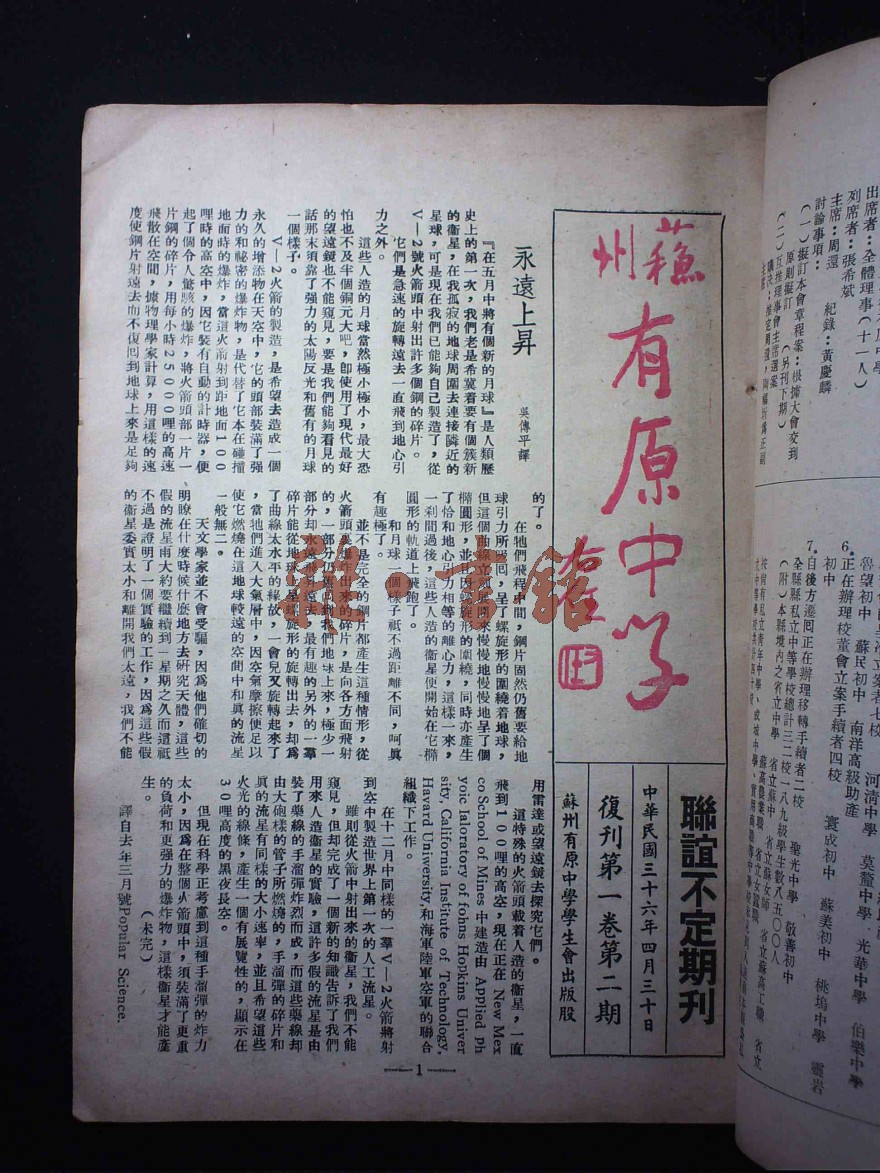 蘇州
有原中學
聯誼不定期刊
中華民國三十六年四月三十日
復刊第一卷第二期
蘇州有原中學學生會出版股
永遠上昇
吳傳平譯
『在五月中將有個新的月球』是人類歷
史上的第一次，我們老是希冀着要有個簇新
的衞星，在我孤寂的地球周圍去連接隣近的
星球，可是現在我們已能夠自己製造了，從
V—2號火箭頭中射出許多個鋼的碎片。
它們是急速的旋轉遠去一直飛到地心引
力之外。
這些人造的月球當然極小極小，最大恐
怕也不及半個銅元大吧，卽使用了現代最好
的望遠鏡也不能窺見，要是我們能夠看見的
話那末須靠了强力的太陽反光和舊有的月球
一個樣子。
V—2火箭的製造，是希望去造成一個
永久的增添物在天空中，它的頭部裝滿了强
力的和秘密的爆炸物，是代替了它本在碰撞
地面時的爆炸，當這火箭射到距地面100
哩時的高空中，因它裝有自動的計時器，便
起了個令人驚駭的爆炸，將火箭頭部一片一
片鋼的碎片，用每小時25000哩的高速
飛散在空間，據物理學家計算，用這樣的速
度使鋼片射遠去而不復囘到地球上來是足夠
的了。
在牠們飛程中間，鋼片固然仍舊要給地
球引力所吸囘，呈了螺旋形的圍繞着地球，
但這個曲線立刻展開來慢慢地慢慢地呈了個
橢圓形，並且因螺旋形的圍繞，同時亦產生
了恰和地心引力相等的離心力，這樣一來，
一刹間過後，這些人造的衞星便開始在它橢
圓形的軌道上飛跑了。
和月球一個樣子祇不過距離不同，呵眞
有趣極了。
並不是完全的鋼片都產生這種情形，從
火箭頭裏爆炸出來的碎片，是向各方面飛射
的，一部分仍舊囘到我們地球上來，極少一
部分却永遠飛升遠去，最有趣的另外的一羣
碎片能從地球呈螺旋形的旋轉出去，却爲
了曲線太水平的緣故，一會兒又旋轉起來了
，當牠們進入大氣層中，因空氣摩擦便足以
使它燃燒在這地球較遠的空間中和眞的流星
一般無二。
天文學家並不會受騙，因爲他們確切的
明瞭在什麼時候什麼地方去硏究天體，這些
假的流星雨大約要繼續到一星期之久而這祇
不過是證明了一個實驗的工作，因爲這些假
的衞星委實太小和離開我們太遠，我們不能
用雷達或望遠鏡去探究它們。
這特殊的火箭頭載着人造的衞星，一直
飛到100哩的高空，現在正在 New Mex
co School of Mines 中建造由 Applied ph
yoic laloratory of fohns Hopkins Univer
sity, California Institute of Technology,
Havard University, 和海軍陸軍空軍的聯合
組織下工作。
在十二月中同樣的一羣V—2火箭將射
到空中製造世界上第一次的人工流星。
雖則從火箭中射出來的衞星，我們不能
窺見，但却完成了一個新的知識告訴了我們
用來人造衞星的實驗，這許多假的流星是由
裝了藥線的手溜彈炸烈而成，而這些藥線却
由大砲樣的管子所燃燒的，手溜彈的碎片和
眞的流星有同樣的大小速率，並且希望這些
火光的線條，產生一個有展覽性的，顯示在
30哩高度的黑夜長空。
但現在科學正考慮到這種手溜彈的炸力
太小，因爲在整個火箭頭中，須裝滿了更重
的負荷和更强力的爆炸物，這樣衞星才能產
生。（未完）
譯自去年三月號Popular Science.
—1—
出席者：全體理事（十一人）
列席者：張希斌
主席：周還　紀錄：黃慶麟
討論事項：
（一）擬訂本會章程案：根據大會交到
原則擬訂（另刊下期）
（二）互推理事會主席選案
6.正在辦理校董會立案手續者四校
初中
魯望初中　蘇民初中　南洋高級助產
寰成初中　蘇美初中　桃塢中學　靈岩
河清中學　莫釐中學　光華中學　伯樂中學
7.自後方遷囘正在辦理移轉手續者二校
聖光中學　敬善初中
全縣縣私立中等學校總計三二校一八九級學生數八五〇〇人
（附）本縣境內之省立中學　省立蘇中　省立蘇女師　省立蘇高工職　省立
蘇高農業職　省立女蠶職